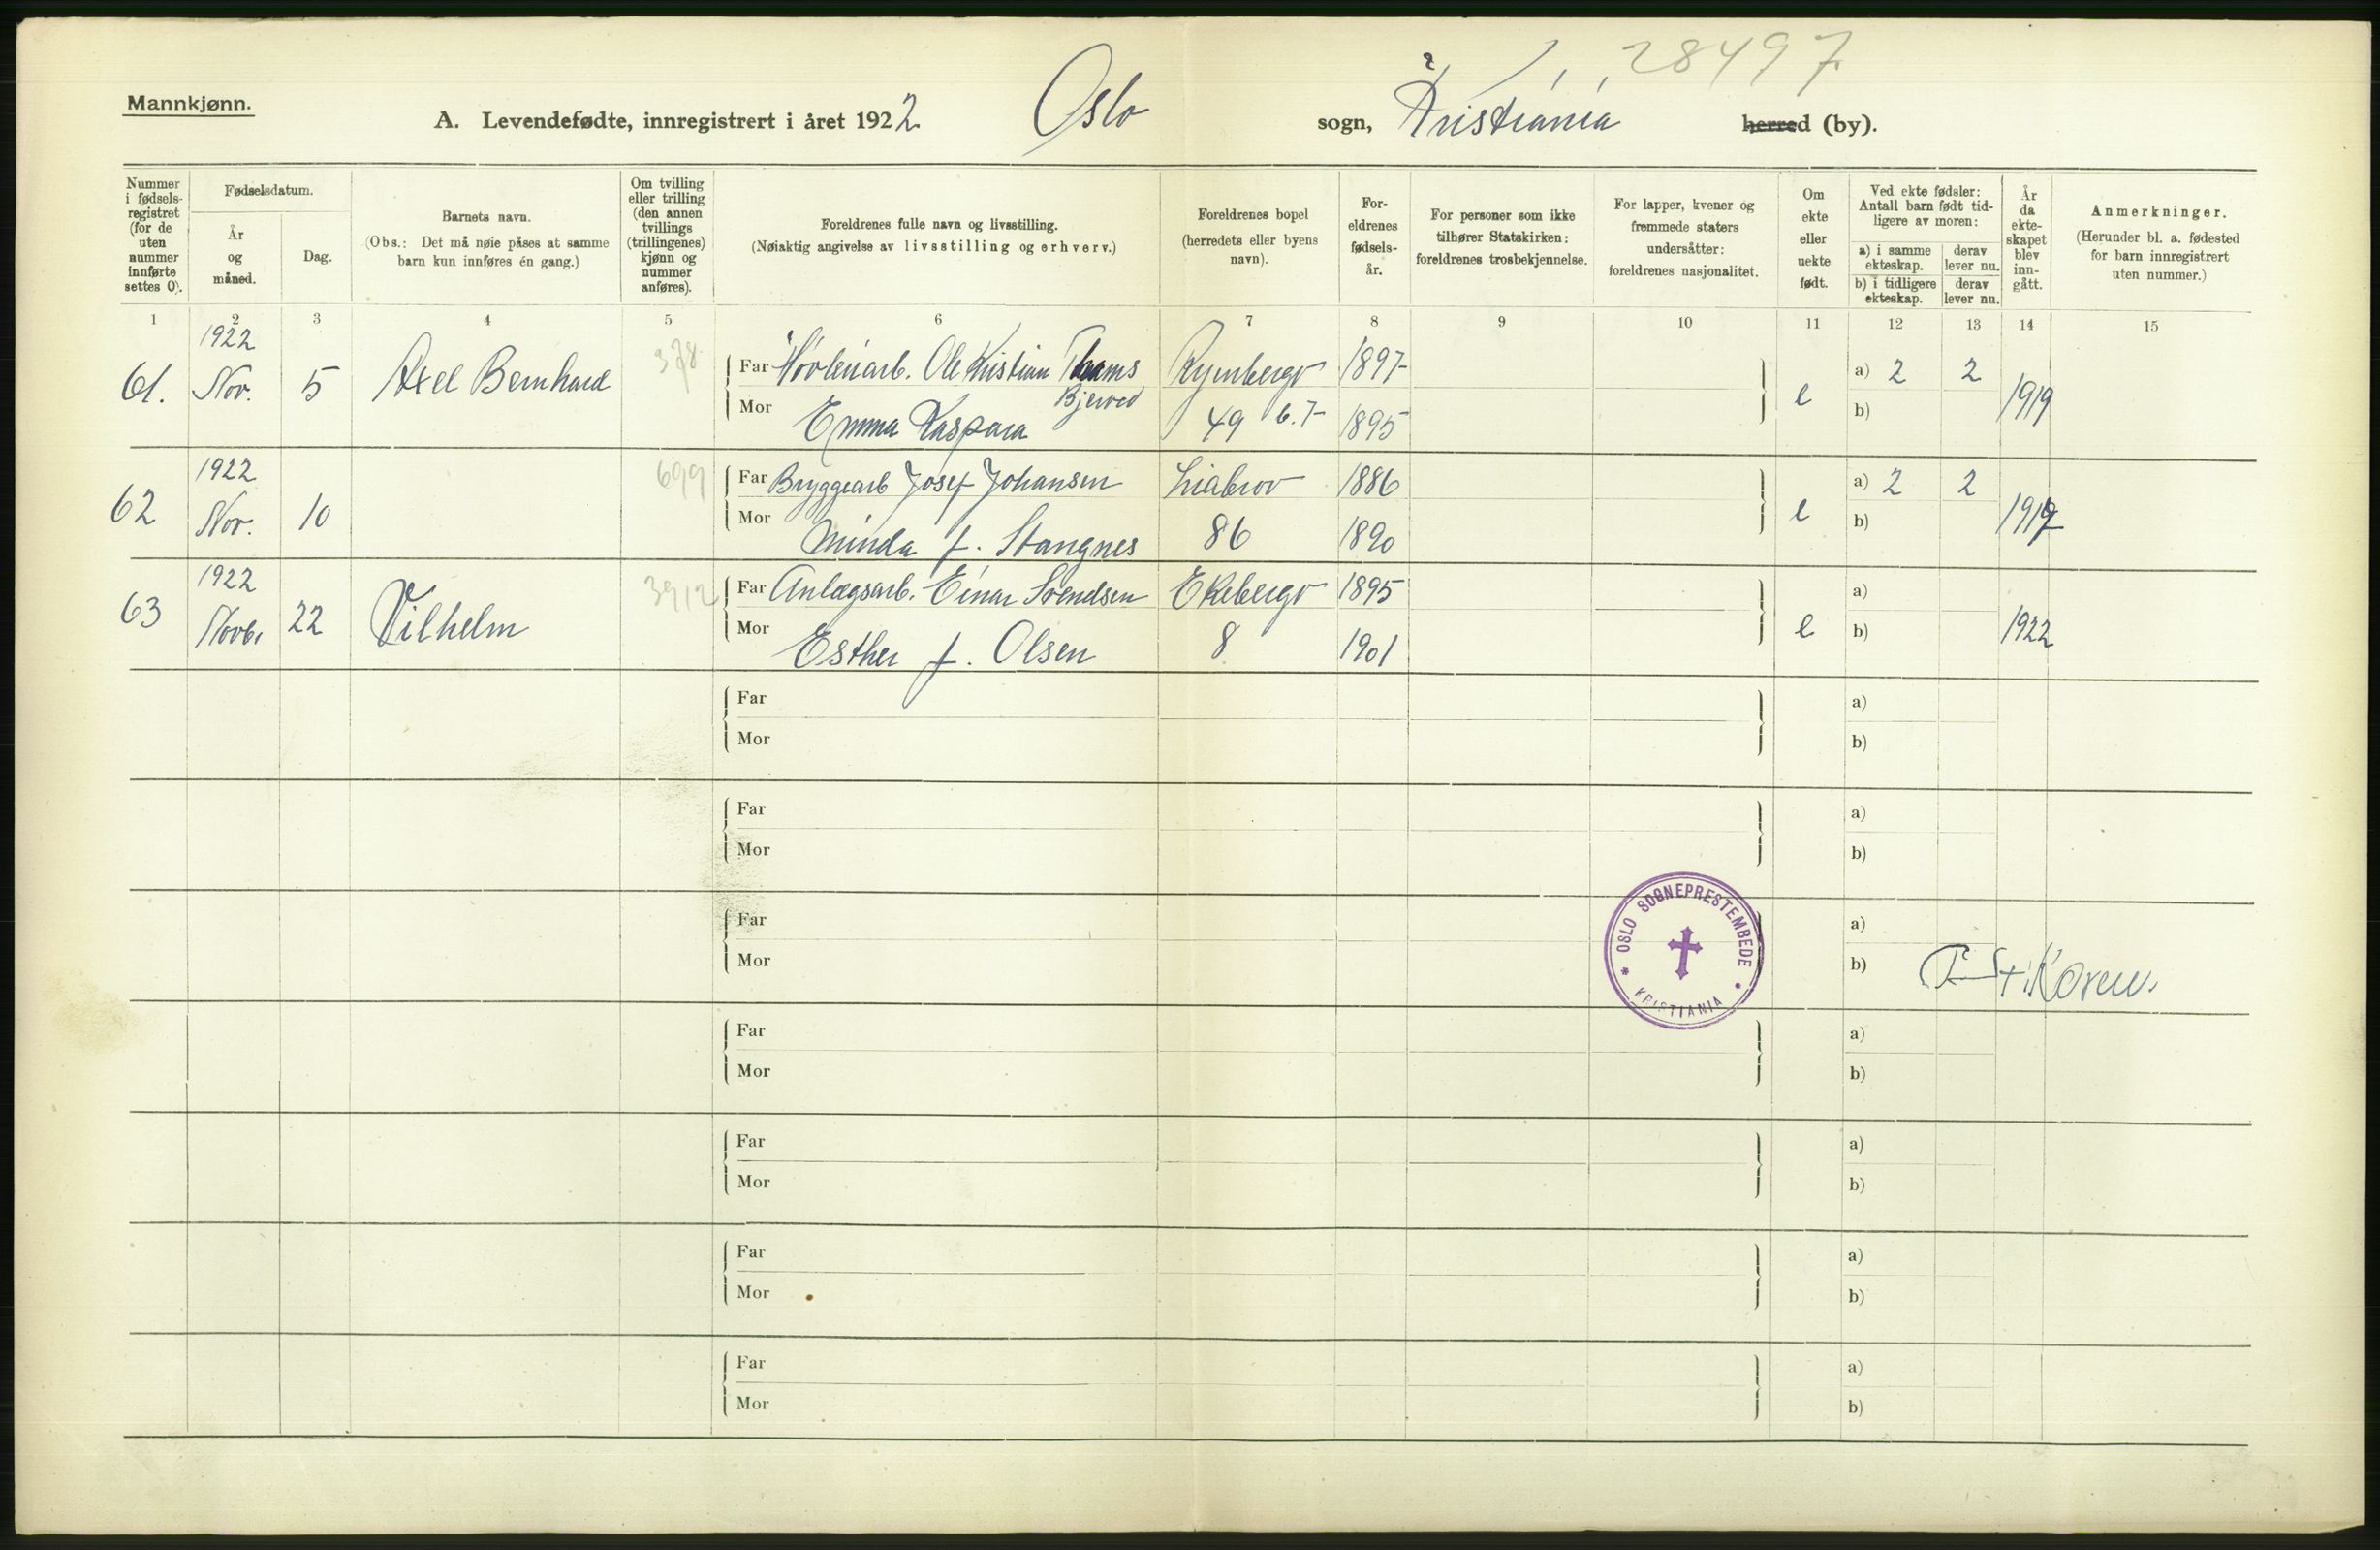 28497
Mannkjønn.
A. Levendefødte, innregistrert i året 1922 Oslo sogn, Kristiania herred (by).
Nummer i fødsels-registret (for de uten nummer innførte settes 0).
Fødselsdatum.
År og måned.
Dag.
Barnets navn.
(Obs.: Det må nøie påses at samme barn kun innføres én gang.)
Om tvilling eller trilling (den annen tvillings (trillingenes) kjønn og nummer anføres).
Foreldrenes fulle navn og livsstilling.
(Nøiaktig angivelse av livsstilling og erhverv.)
Foreldrenes bopel (herredets eller byens navn).
For-eldrenes fødsels-år.
For personer som ikke tilhører Statskirken: foreldrenes trosbekjennelse.
For lapper, kvener og fremmede staters undersåtter: foreldrenes nasjonalitet.
Om ekte eller uekte født.
Ved ekte fødsler: Antall barn født tid-ligere av moren:
a) i samme ekteskap. derav lever nu.
b) i tidligere ekteskap. derav lever nu.
År da ekte-skapet blev inn-gått.
Anmerkninger.
(Herunder bl. a. fødested for barn innregistrert uten nummer.)
1 2 3 4 5 6 7 8 9 10 11 12 13 14 15
1922
61. Nov. 5 Axel Bernhard 378 Far Høvleriarb. Ole Kristian Thams Rymbergv 1897 e a) 2 2 1919
Bjerved
Mor Emma Kaspara 49 b.7 1895 b)
1922
62 Nov. 10 699 Far Bryggearb Josef Johansen Liabrov 1886 e a) 2 2
Mor Minda f. Stangnes 86 1890 b)
1922
63 Novb. 22 Vilhelm 3912 Far Anlægsarb. Einar Svendsen Ekebergv 1895 e a) 1922
Mor Esther f. Olsen 8 1901 b)
Far a)
Mor b)
Far a)
Mor b)
Far a)
Mor b)
OSLO SOGNEPRESTEMBEDE
KRISTIANIA
Koren.
Far a)
Mor b)
Far a)
Mor b)
Far a)
Mor b)
Far a)
Mor b)